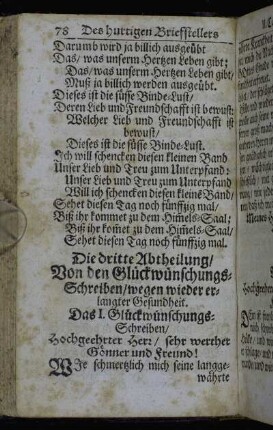 78 Des hurtigen Briefstellers
Darumb wird ja billich ausgeübt
Das/ was unserm Hertzen Leben gibt;
Das/ was unserm Hertzen Leben gibt/
Muß ja billich werden ausgeübt.
Dieses ist die süsse Binde-Lust/
Deren Lieb und Freundschafft ist bewust:
Welcher Lieb und Freundschafft ist
bewust/
Dieses ist die süsse Binde-Lust.
Ich will schencken diesen kleinen Band
Unser Lieb und Treu zum Unterpfand:
Unser Lieb und Treu zum Unterpfand
Will ich schencken diesen kleine Band/
Sehet diesen Tag noch fünffzig mal/
Biß ihr kommet zu dem Him̄els-Saal;
Biß ihr kom̄et zu dem Him̄els-Saal/
Sehet diesen Tag noch fünffzig mal.
Die dritte Abtheilung/
Von den Glückwünschungs-
Schreiben/ wegen wieder er-
langter Gesundheit.
Das I. Glückwünschungs-
Schreiben/
Hochgeehrter Herr/ sehr werther
Gönner und Freund!
WJe schmertzlich mich seine langge-
währte